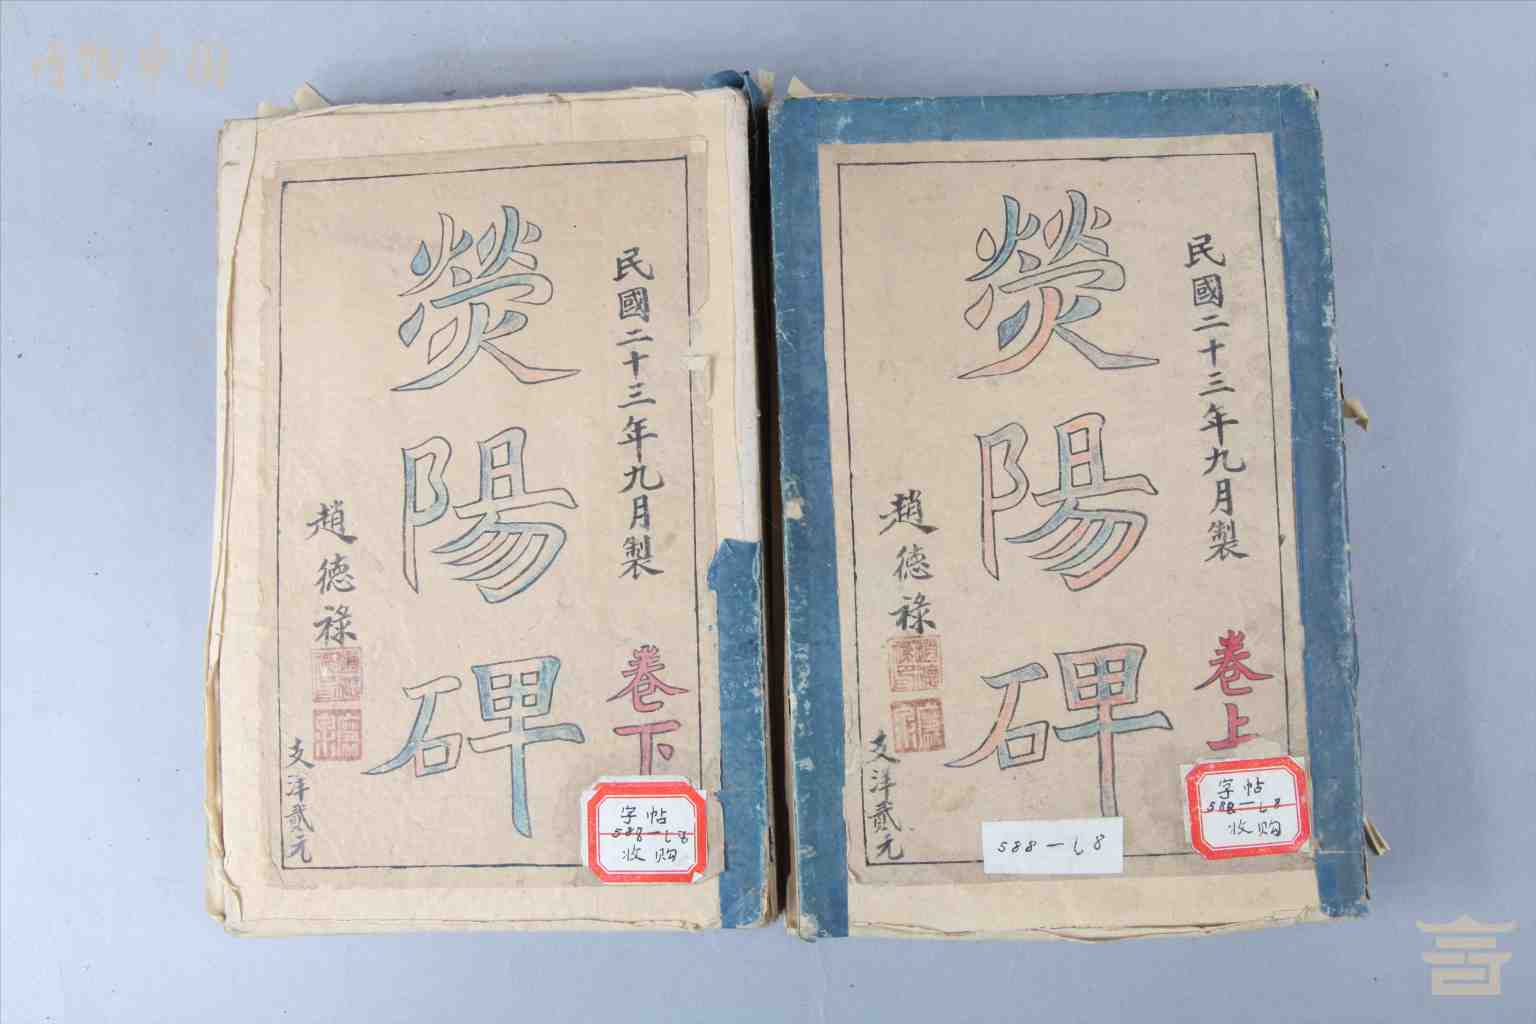 民國二十三年九月製
卷上
熒陽碑
趙德祿
支洋貳元
字帖
588—L8
收购
588—L8
民國二十三年九月製
卷下
熒陽碑
趙德祿
支洋貳元
字帖
588—L8
收购